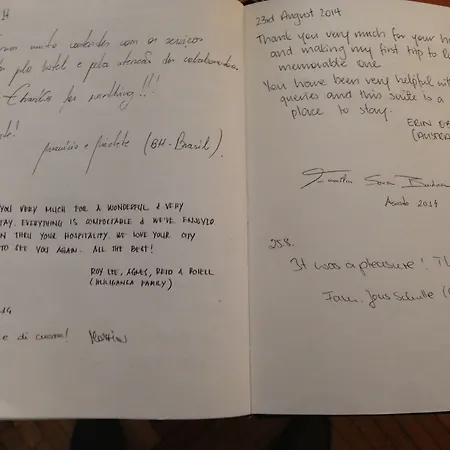 14
muito contentes com os serviços
pelo hotel e pela atenção dos colaboradores.
Thanks for everything!!!
maurício e (BH-Brasil).
YOU VERY MUCH FOR A WONDERFUL & VERY
TAY. EVERYTHING IS COMFORTABLE & WE'VE ENJOYED
N THRU YOUR HOSPITALITY. WE LOVE YOUR CITY
TO SEE YOU AGAIN. ALL THE BEST!
ROY LEE, AGNES, REID &
FAMILY)
14
e di cuore!
23rd August 2014
Thank you very much for your h
and making my first trip to
memorable one
You have been very helpful wit
queries and this suite is a
place to stay.
ERIN
(AUSTRA
Agosto 2014
25.8.
It was a pleasure! T
Fam. Jens Schulte (